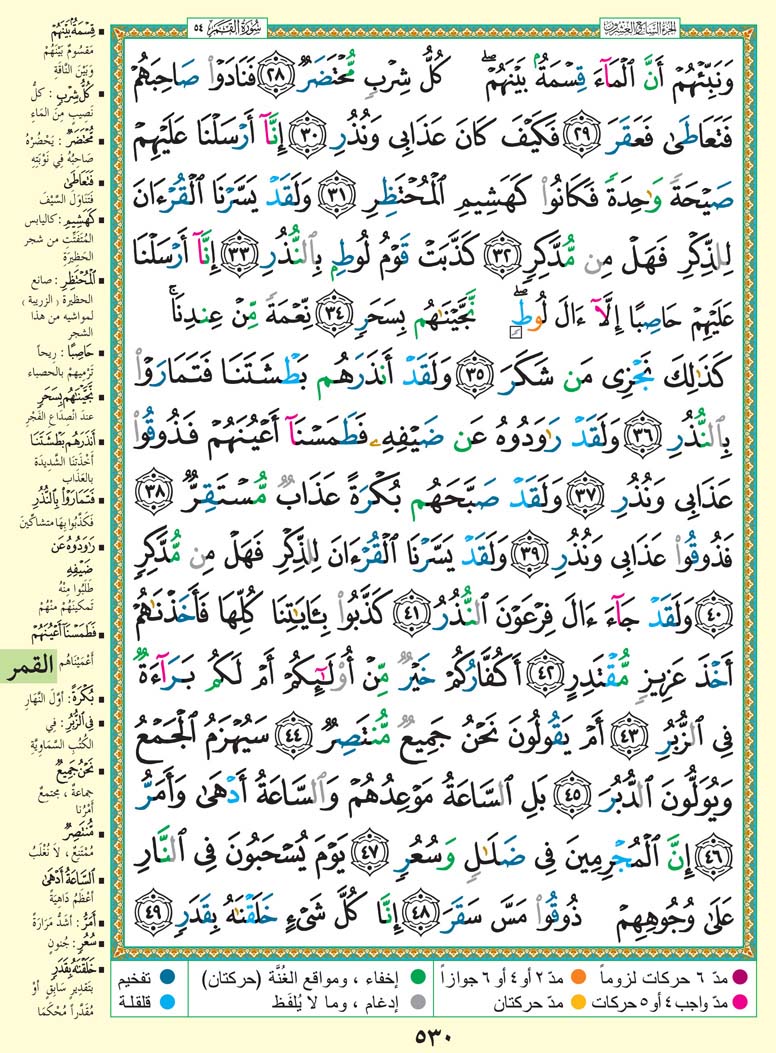 سُورَةُ القَمَر ٥٤
الجزء السابع والعشرون
وَنَبِّئْهُمْ أَنَّ ٱلْمَآءَ قِسْمَةٌۢ بَيْنَهُمْ ۖ كُلُّ شِرْبٍ مُّحْتَضَرٌ ﴿٢٨﴾ فَنَادَوْا۟ صَاحِبَهُمْ
فَتَعَاطَىٰ فَعَقَرَ ﴿٢٩﴾ فَكَيْفَ كَانَ عَذَابِى وَنُذُرِ ﴿٣٠﴾ إِنَّآ أَرْسَلْنَا عَلَيْهِمْ
صَيْحَةً وَٰحِدَةً فَكَانُوا۟ كَهَشِيمِ ٱلْمُحْتَظِرِ ﴿٣١﴾ وَلَقَدْ يَسَّرْنَا ٱلْقُرْءَانَ
لِلذِّكْرِ فَهَلْ مِن مُّدَّكِرٍ ﴿٣٢﴾ كَذَّبَتْ قَوْمُ لُوطٍۭ بِٱلنُّذُرِ ﴿٣٣﴾ إِنَّآ أَرْسَلْنَا
عَلَيْهِمْ حَاصِبًا إِلَّآ ءَالَ لُوطٍ ۖ نَّجَّيْنَٰهُم بِسَحَرٍ ﴿٣٤﴾ نِّعْمَةً مِّنْ عِندِنَا ۚ
كَذَٰلِكَ نَجْزِى مَن شَكَرَ ﴿٣٥﴾ وَلَقَدْ أَنذَرَهُم بَطْشَتَنَا فَتَمَارَوْا۟
بِٱلنُّذُرِ ﴿٣٦﴾ وَلَقَدْ رَٰوَدُوهُ عَن ضَيْفِهِۦ فَطَمَسْنَآ أَعْيُنَهُمْ فَذُوقُوا۟
عَذَابِى وَنُذُرِ ﴿٣٧﴾ وَلَقَدْ صَبَّحَهُم بُكْرَةً عَذَابٌ مُّسْتَقِرٌّ ﴿٣٨﴾
فَذُوقُوا۟ عَذَابِى وَنُذُرِ ﴿٣٩﴾ وَلَقَدْ يَسَّرْنَا ٱلْقُرْءَانَ لِلذِّكْرِ فَهَلْ مِن مُّدَّكِرٍ
﴿٤٠﴾ وَلَقَدْ جَآءَ ءَالَ فِرْعَوْنَ ٱلنُّذُرُ ﴿٤١﴾ كَذَّبُوا۟ بِـَٔايَٰتِنَا كُلِّهَا فَأَخَذْنَٰهُمْ
أَخْذَ عَزِيزٍ مُّقْتَدِرٍ ﴿٤٢﴾ أَكُفَّارُكُمْ خَيْرٌ مِّنْ أُو۟لَٰٓئِكُمْ أَمْ لَكُم بَرَآءَةٌ
فِى ٱلزُّبُرِ ﴿٤٣﴾ أَمْ يَقُولُونَ نَحْنُ جَمِيعٌ مُّنتَصِرٌ ﴿٤٤﴾ سَيُهْزَمُ ٱلْجَمْعُ
وَيُوَلُّونَ ٱلدُّبُرَ ﴿٤٥﴾ بَلِ ٱلسَّاعَةُ مَوْعِدُهُمْ وَٱلسَّاعَةُ أَدْهَىٰ وَأَمَرُّ
﴿٤٦﴾ إِنَّ ٱلْمُجْرِمِينَ فِى ضَلَٰلٍ وَسُعُرٍ ﴿٤٧﴾ يَوْمَ يُسْحَبُونَ فِى ٱلنَّارِ
عَلَىٰ وُجُوهِهِمْ ذُوقُوا۟ مَسَّ سَقَرَ ﴿٤٨﴾ إِنَّا كُلَّ شَىْءٍ خَلَقْنَٰهُ بِقَدَرٍ ﴿٤٩﴾
قِسْمَةٌ بَيْنَهُمْ
مَقسُومٌ بَيْنَهُمْ
وَبَيْنَ النَّاقَةِ
كُلُّ شِرْبٍ : كلُّ
نَصِيبٍ مِنَ المَاءِ
مُّحْتَضَرٌ : يَحْضُرُهُ
صَاحِبُهُ فِي نَوْبَتِهِ
فَتَعَاطَىٰ
فَتَنَاوَلَ السَّيْفَ
كَهَشِيمِ : كاليابس
المُتَفَتِّتِ من شجر
الحَظِيرَةِ
ٱلْمُحْتَظِرِ : صانع
الحظيرة ( الزريبة )
لمواشيه من هذا
الشجر
حَاصِبًا : ريحاً
تَرْمِيهِمْ بالحصباء
نَّجَّيْنَٰهُم بِسَحَرٍ
عند انْصِدَاعِ الفَجْرِ
أَنذَرَهُم بَطْشَتَنَا
أَخْذَتَنَا الشَّدِيدَةَ
بالعَذَابِ
فَتَمَارَوْا۟ بِٱلنُّذُرِ
فَكَذَّبُوا بِهَا متشاكِّينَ
رَٰوَدُوهُ عَن
ضَيْفِهِ
طَلَبُوا مِنْهُ
تَمكينَهُمْ مِنْهُمْ
فَطَمَسْنَآ أَعْيُنَهُمْ
أَعْمَيْنَاهُم
القمر
بُكْرَةً : أوَّلَ النَّهَارِ
فِى ٱلزُّبُرِ : فِي
الكُتُبِ السَّمَاوِيَّةِ
نَحْنُ جَمِيعٌ
جماعةٌ ، مجتمعٌ
أَمْرُنا
مُّنتَصِرٌ
مُمْتَنِعٌ ، لَا نُغْلَبُ
ٱلسَّاعَةُ أَدْهَىٰ
أعْظَمُ دَاهِيَةً
أَمَرُّ : أشدُّ مَرَارَةً
سُعُرٍ : جُنونٍ
خَلَقْنَٰهُ بِقَدَرٍ
بتَقديرٍ سَابِقٍ أوْ
مُقَدَّراً مُحْكَماً
مدّ ٦ حركات لزوماً
مدّ ٢ أو ٤ أو ٦ جوازاً
إخفاء ، ومواقع الغُنَّة (حركتان)
تفخيم
مدّ واجب ٤ أو ٥ حركات
مدّ حركتان
إدغام ، وما لا يُلفَظ
قلقلة
٥٣٠